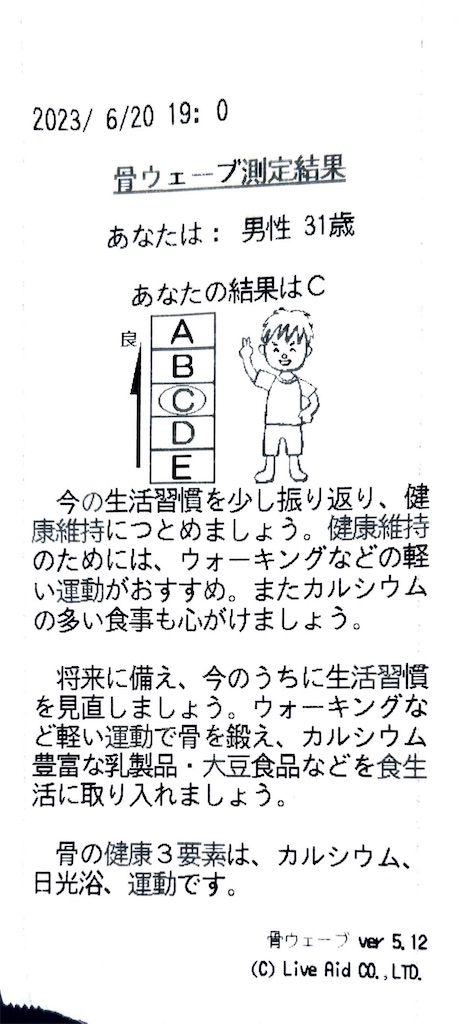 2023/ 6/20 19: 0
骨ウェーブ測定結果
あなたは: 男性 31歳
あなたの結果はC
良
A
B
C
D
E
今の生活習慣を少し振り返り、健
康維持につとめましょう。健康維持
のためには、ウォーキングなどの軽
い運動がおすすめ。またカルシウム
の多い食事も心がけましょう。
将来に備え、今のうちに生活習慣
を見直しましょう。ウォーキングな
ど軽い運動で骨を鍛え、カルシウム
豊富な乳製品・大豆食品などを食生
活に取り入れましょう。
骨の健康3要素は、カルシウム、
日光浴、運動です。
骨ウェーブ ver 5.12
(C) Live Aid CO.,LTD.